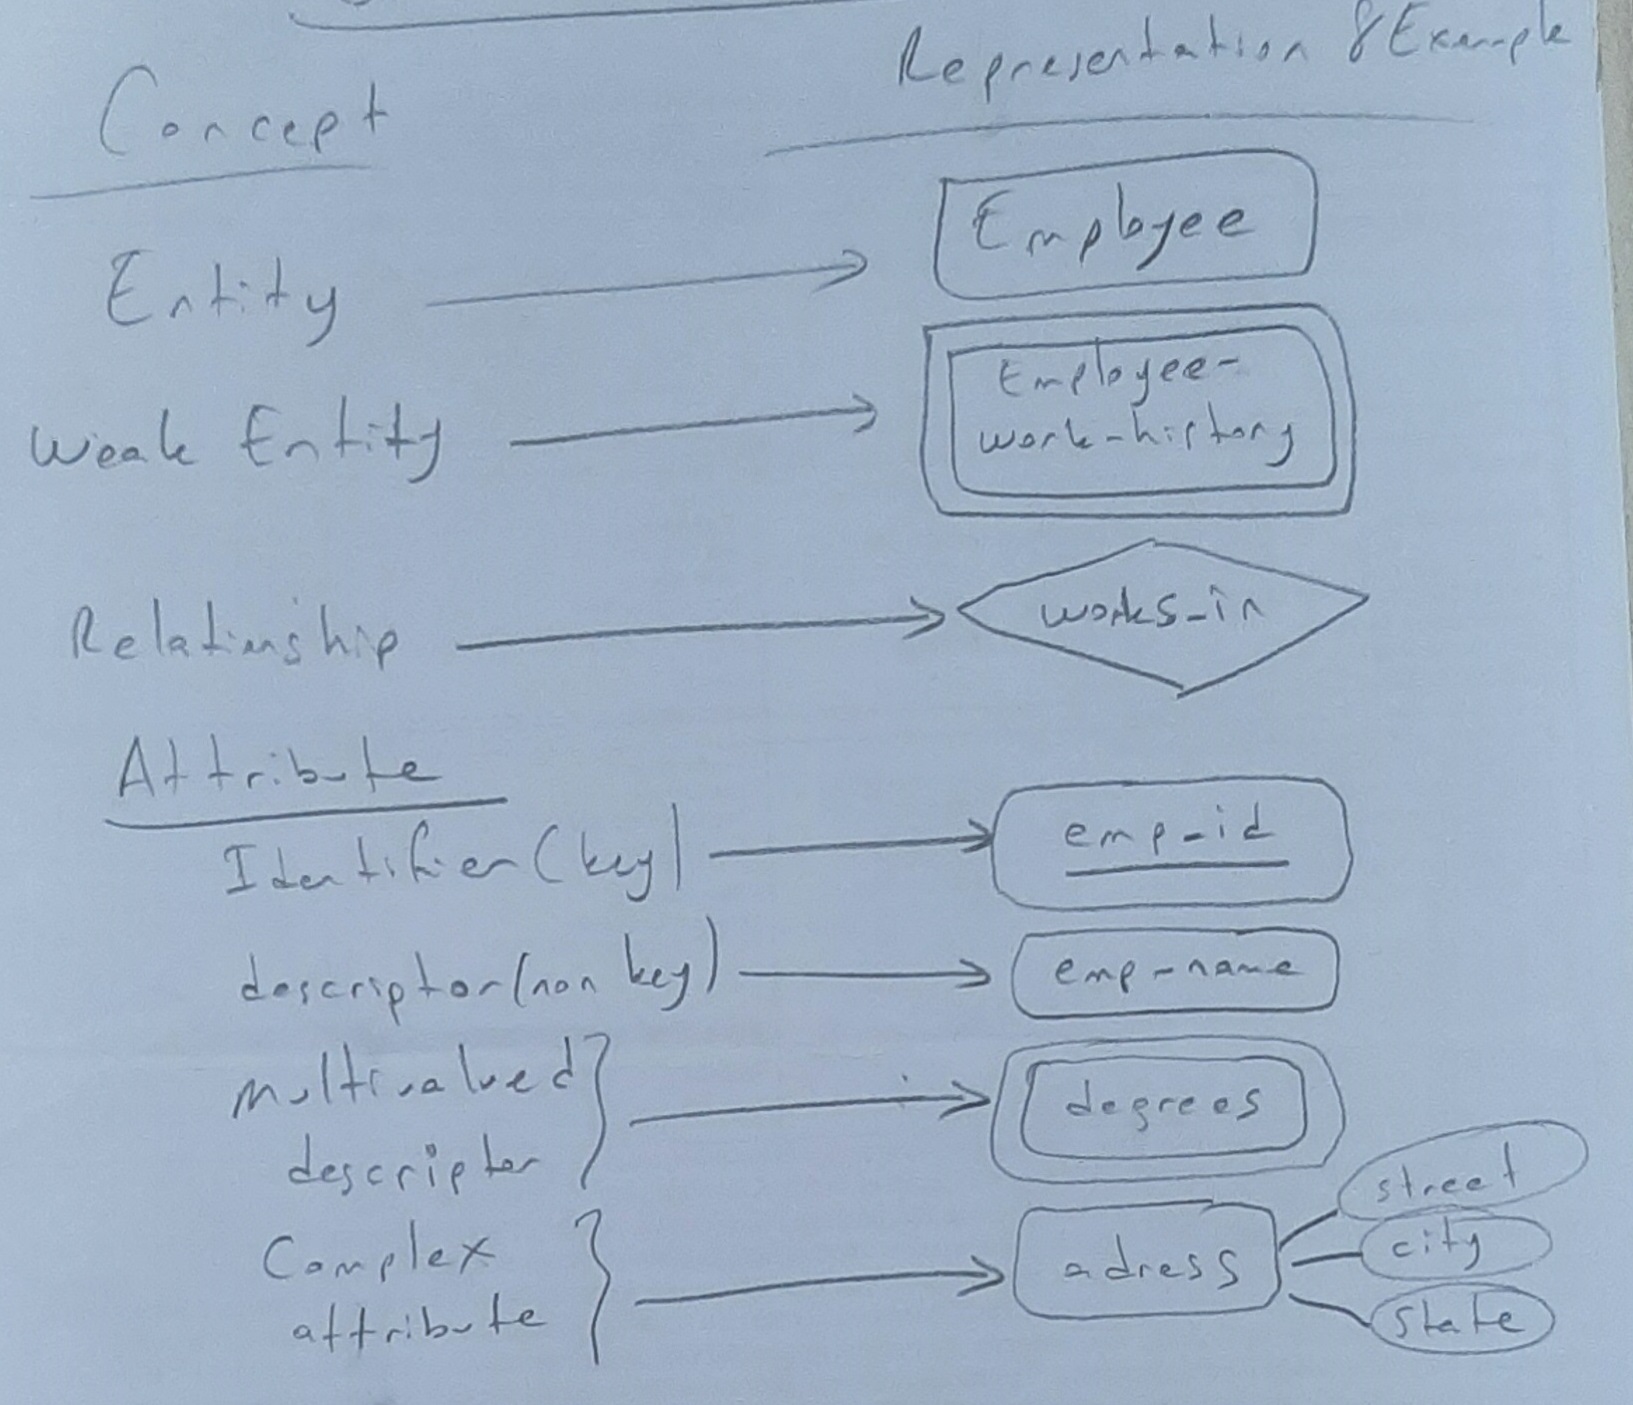 Concept
Representation & Example
Entity
Employee
Weak Entity
Employee-
work-history
Relationship
works-in
Attribute
Identifier (key)
emp-id
descriptor (non key)
emp-name
multivalued
descriptor
degrees
Complex
attribute
adress
street
city
state